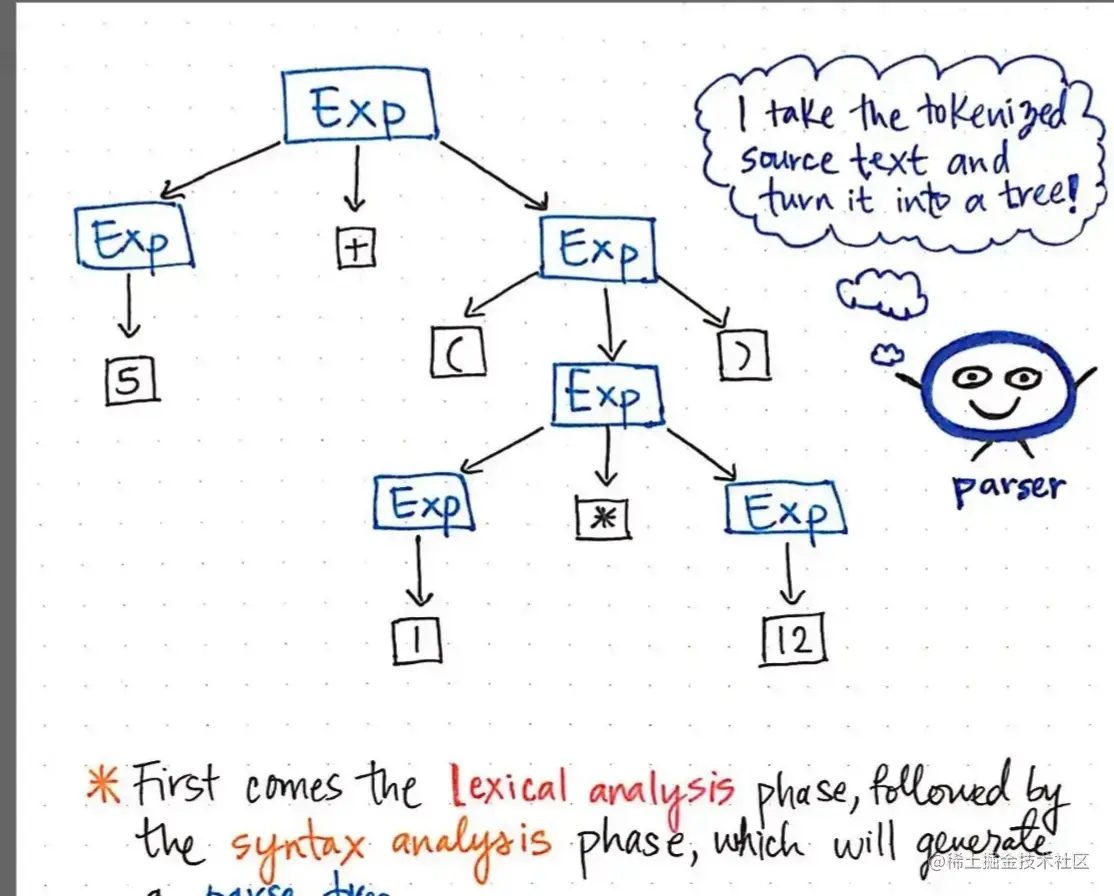 Exp
I take the tokenized
source text and
turn it into a tree!
Exp
+
Exp
5
(
)
Exp
parser
Exp
*
Exp
1
12
* First comes the lexical analysis phase, followed by
the syntax analysis phase, which will generate
a parse tree
@稀土掘金技术社区